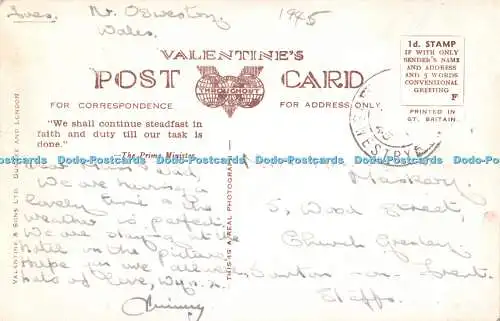 Tues. Nr. Oswestry, 1945
Wales.
VALENTINE'S
POST CARD
THROUGHOUT
FOR CORRESPONDENCE
FOR ADDRESS ONLY
1d. STAMP
IF WITH ONLY
SENDER'S NAME
AND ADDRESS
AND 5 WORDS
CONVENTIONAL
GREETING
F
PRINTED IN
GT. BRITAIN.
"We shall continue steadfast in
faith and duty till our task is
done."
—The Prime Minister
VALENTINE & SONS LTD. DUNDEE AND LONDON
THIS IS A REAL PHOTOGRAPH
Dear Mum & Dad,
We are having a
lovely time & the
weather is perfect.
We are staying at the
hotel on the picture
Hope you are all well
Lots of love,
Maskery,
5, Wood Street,
Church Gresley
Burton-on-Trent
Staffs.
Postcards Postcards Postcards Postcards Postcards Postcards Postcards